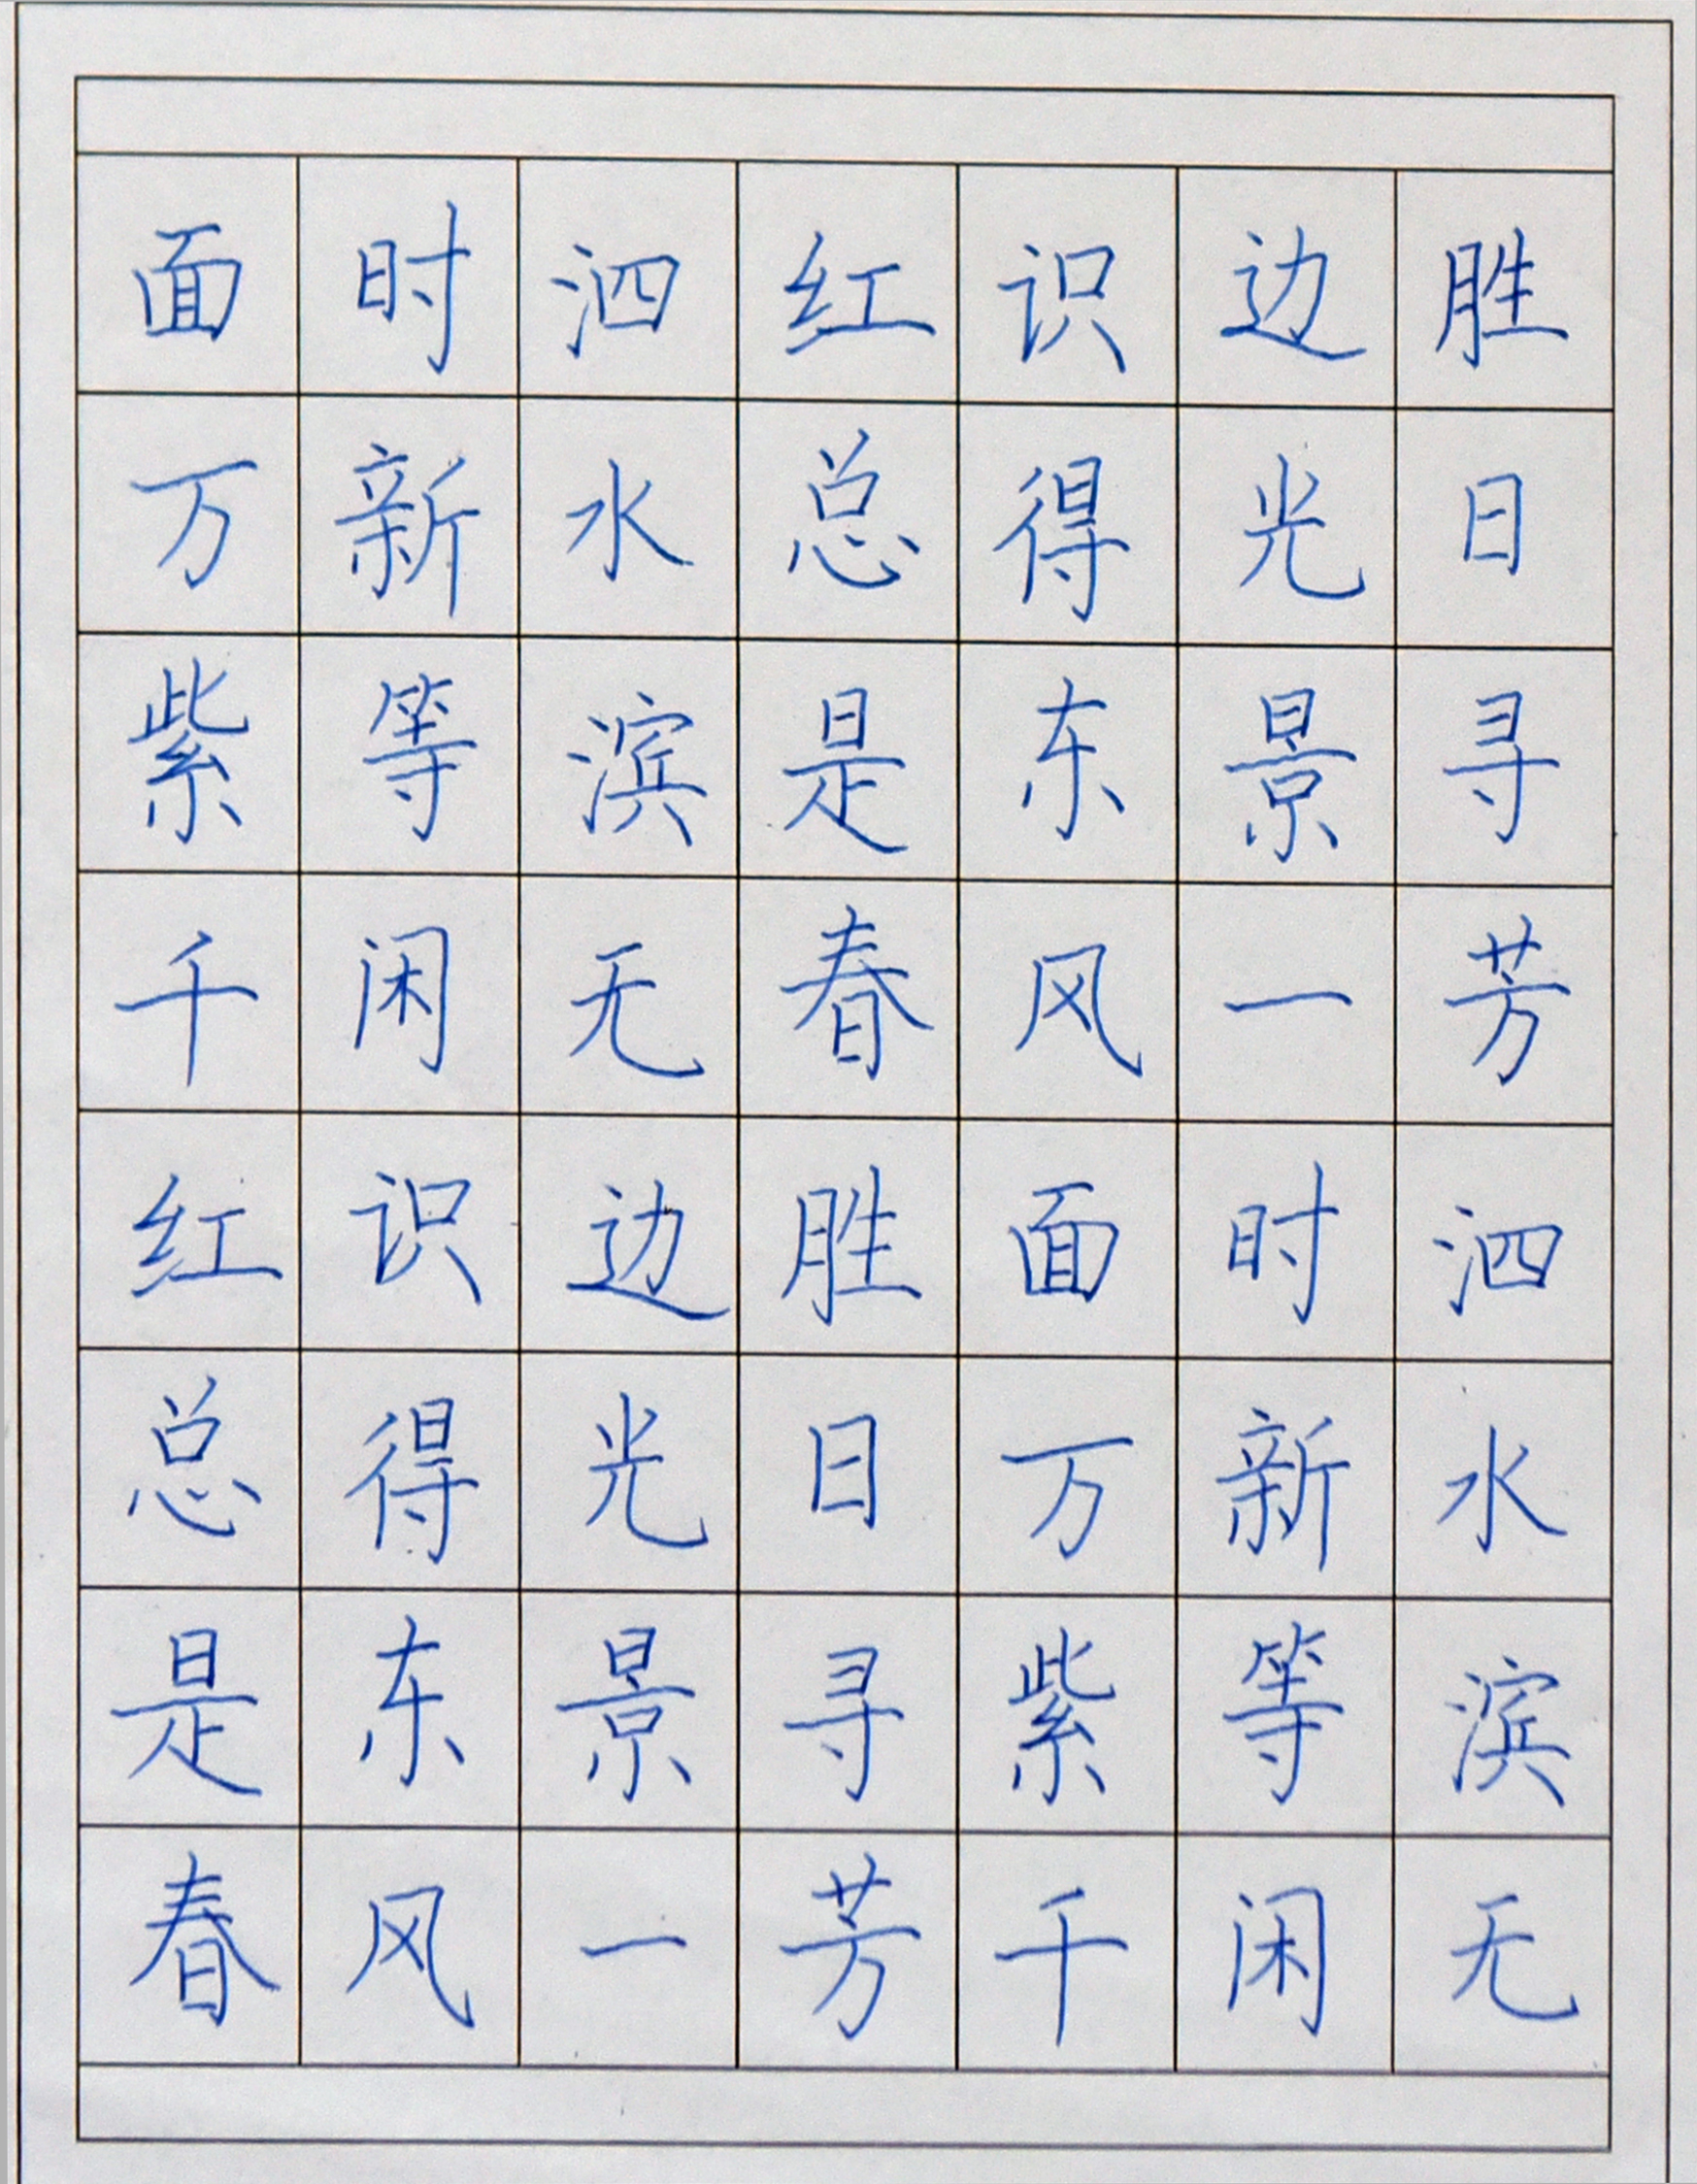 胜日寻芳泗水滨无
边光景一时新等闲
识得东风面万紫千
红总是春胜日寻芳
泗水滨无边光景一
时新等闲识得东风
面万紫千红总是春